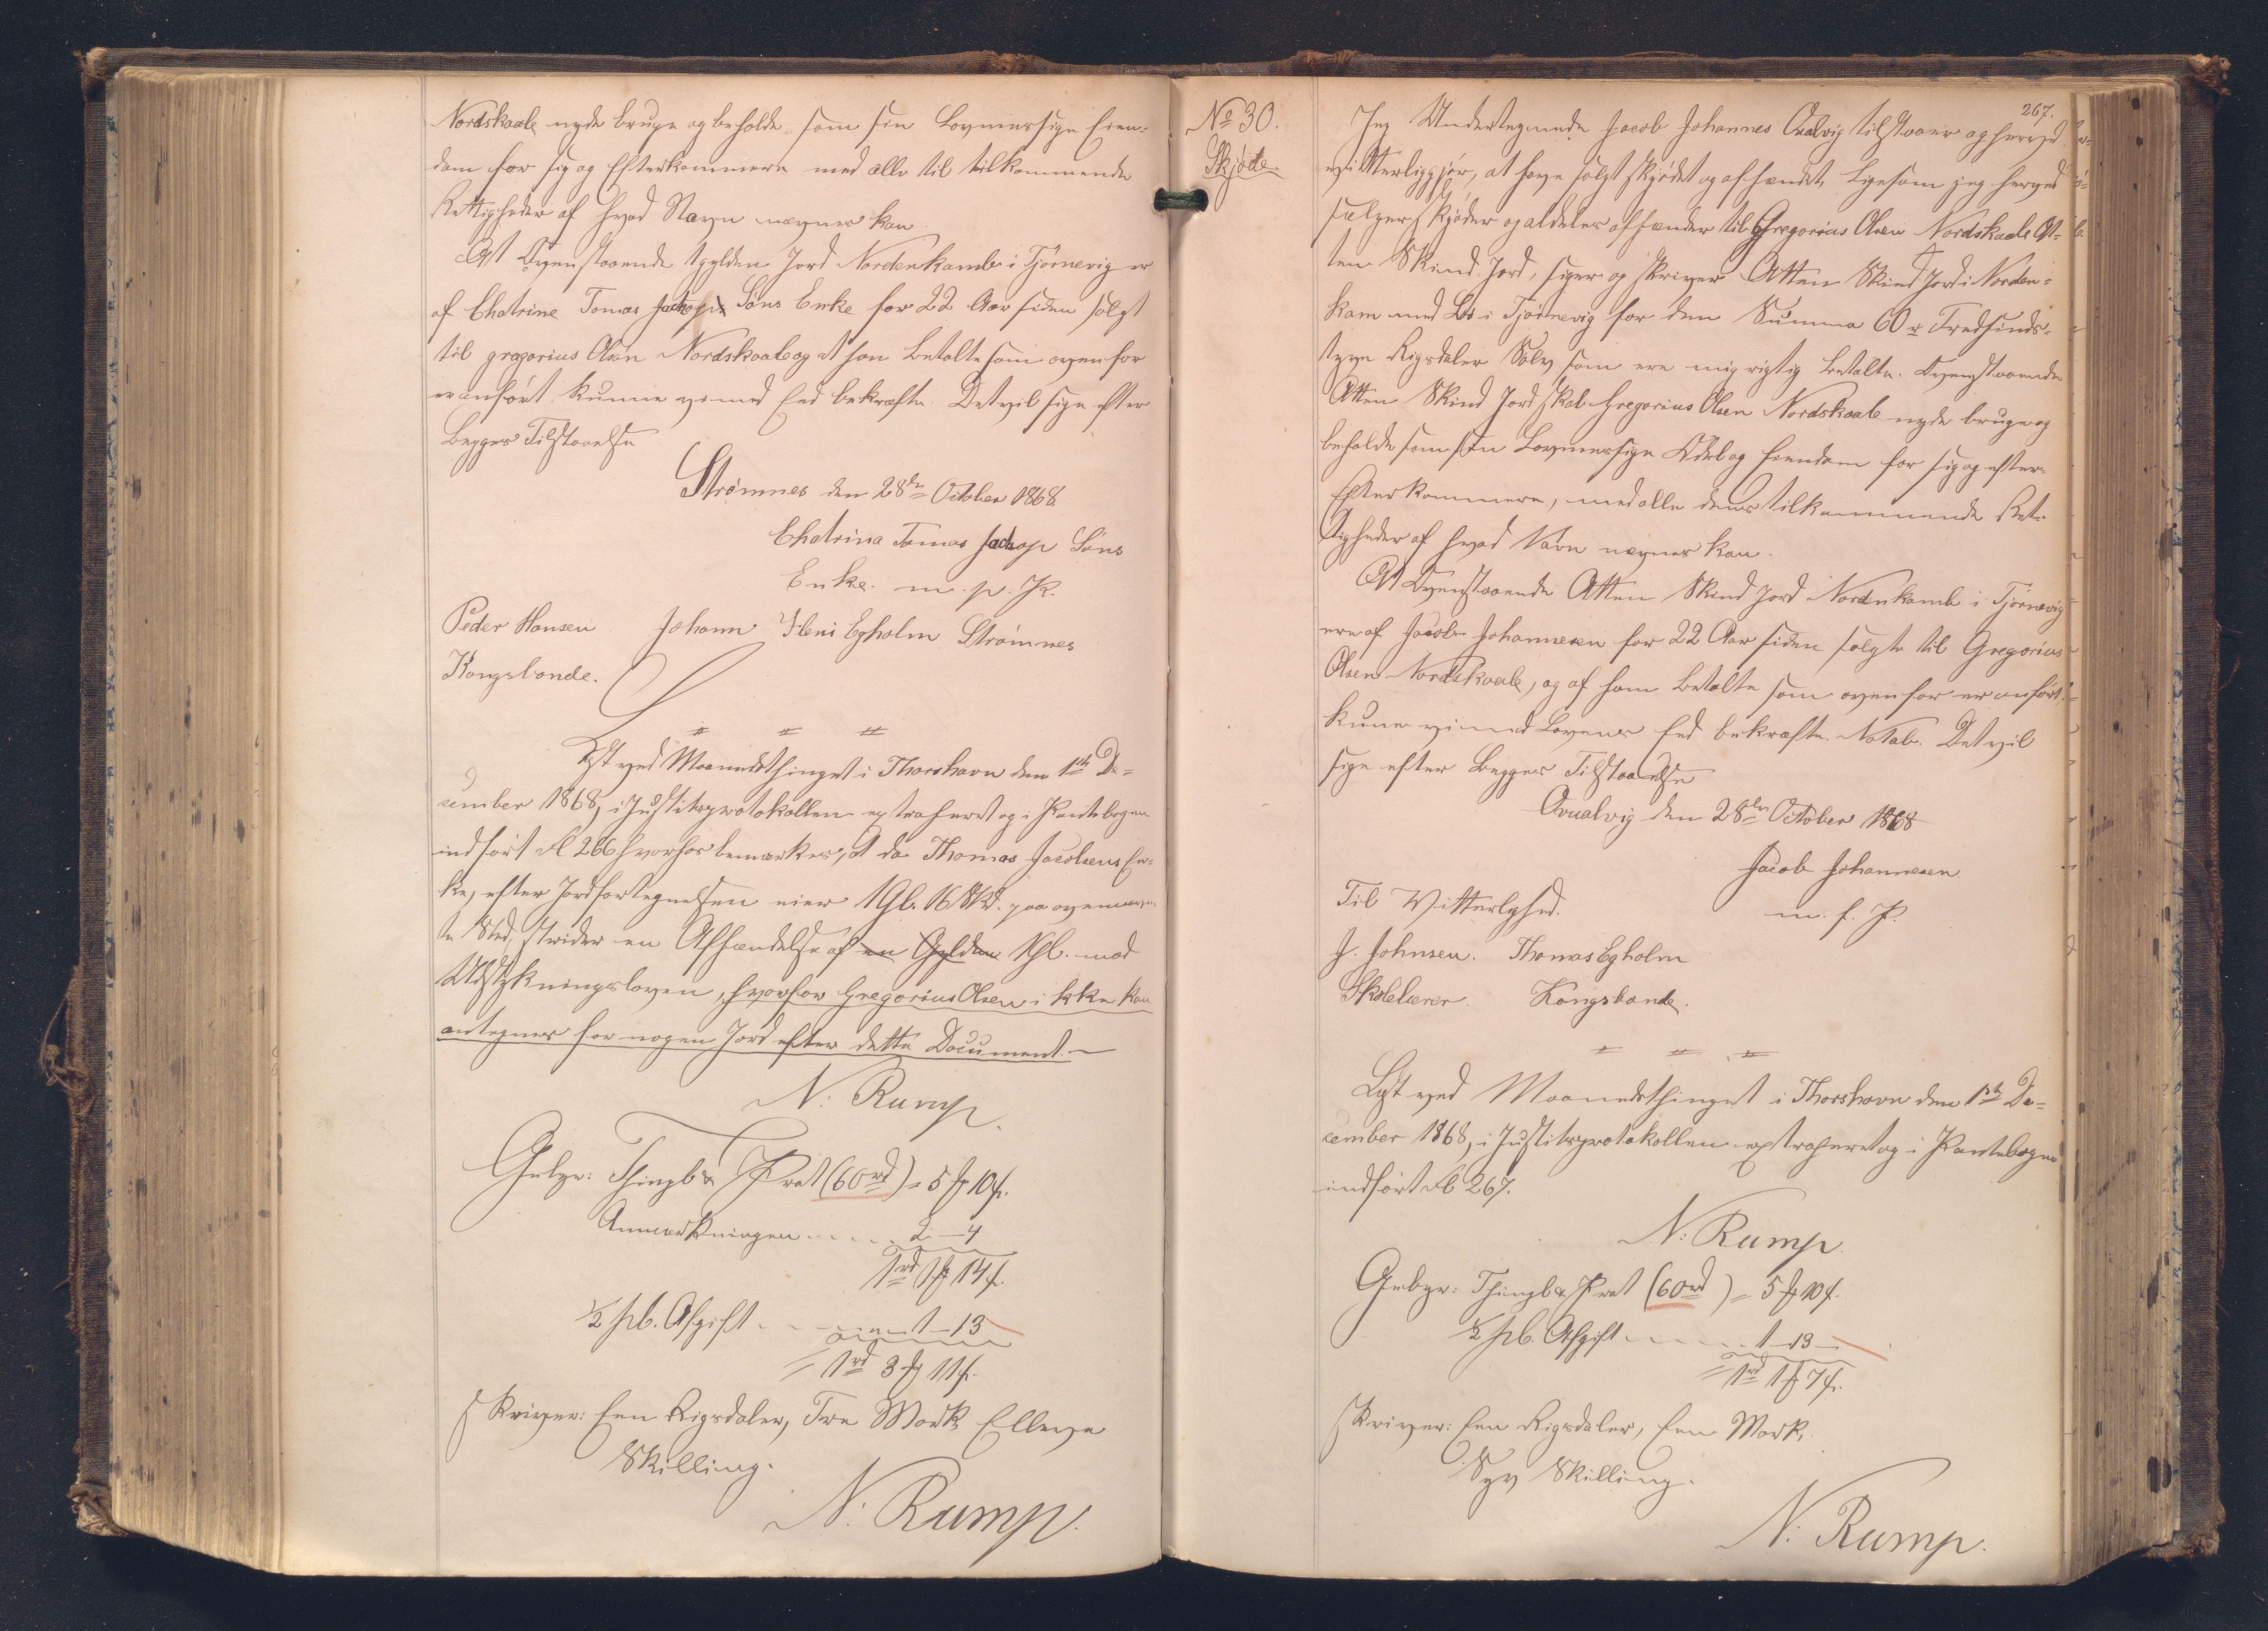 Nordskaale nyde bruge og beholde som sin Lovmæssige Eien-
dom for sig og Efterkommere med alle til tilkommende
Rettigheder af hvad Navn nævnes kan.
At Ovenstaaende 1 gylden Jord Nordenkamb i Tjörnevig er
af Chatrine Tomas Jachop Söns Enke for 22 Aar siden solgt
til gragorius Olsen Nordskaale og at han betalte som ovenfor
er anført kunne vi med Eed bekræfte. Det vil sige efter
Begges Tilstaaelse
Strømnes den 28de October 1868.
Chatrina Tomas Jachop Söns
Enke. m. p. P.
Peder Hansen Johann Heni Egholm Strømnes
Kongsbonde.
Lyst ved Maanedsthinget i Thorshavn den 1ste De-
cember 1868, i Justitsprotokollen extraheret og i Pantebogen
indført Fol 266 hvorhos bemærkes, at da Thomas Jacobsens En-
ke, efter Jordfortegnelsen eier 1 Gl. 16 Skd. paa ovennævn-
te Sted, strider en Afhændelse af en Gylden 1 Gl. mod
Udstykningsloven, hvorfor Gregorius Olsen ikke kan
antegnes for nogen Jord efter dette Document.
N. Rump.
Gebyr: Thinglæs. & Prot (60 rd) = 5 ƒ 10 ſ.
Anmærkningen . . . . 2 - 4
1 rd 1 ƒ 14 ſ.
1/2 pCt. Afgift . . . 1 - 13
= 1 rd 3 ƒ 11 ſ.
skriver: Een Rigsdaler, Tre Mark Elleve
Skilling.
N. Rump.
267.
No 30.
Skjøde.
Jeg Undertegnede Jacob Johannes Qvalvig tilstaaer og herved
vitterliggjör, at have solgt skjödet og afhændet, ligesom jeg herved
sælger, skjöder og aldeles afhænder til Gregorius Olsen Nordskaale At-
ten Skind Jord, siger og skriver Atten Skind Jord i Norden-
kam med Lod i Tjørnevig for den Summa 60 rd Tredsinds-
tyve Rigsdaler Sølv som ere mig rigtig betalte. Ovenstaaende
Atten Skind Jord skal Gregorius Olsen Nordskaale nyde bruge og
beholde som sin Lovmæssige Odel og Eiendom for sig og efter-
Efterkommere, med alle dens tilkommende Ret-
tigheder af hvad Navn nævnes kan.
At Ovenstaaende Atten Skind Jord Nordenkamb i Tjørnevig
ere af Jacob Johannesen for 22 Aar siden solgte til Gregorius
Olsen Nordskaale, og af ham betalte som ovenfor er anført.
kunne vi med Lovens Eed bekræfte. Notab. Det vil
sige efter Begges Tilstaaelse
Qvalvig den 28de October 1868
Jacob Johannesen
m. f. P.
Til Vitterlighed.
J. Johnsen. Thomas Egholm
Skolelærer. Kongsbonde.
Lyst ved Maanedsthinget i Thorshavn den 1ste De-
cember 1868, i Justitsprotokollen extraheret og i Pantebogen
indført Fol 267.
N. Rump.
Gebyr: Thinglæs. & Prot (60 rd) = 5 ƒ 10 ſ.
1/2 pCt. Afgift . . . . 1 - 13
= 1 rd 1 ƒ 7 ſ.
skriver: Een Rigsdaler, Een Mark,
Syv Skilling.
N. Rump.